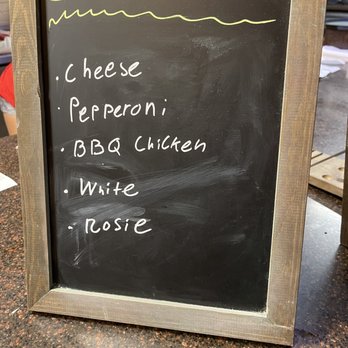 · Cheese
· Pepperoni
· BBQ Chicken
· White
· Rosie